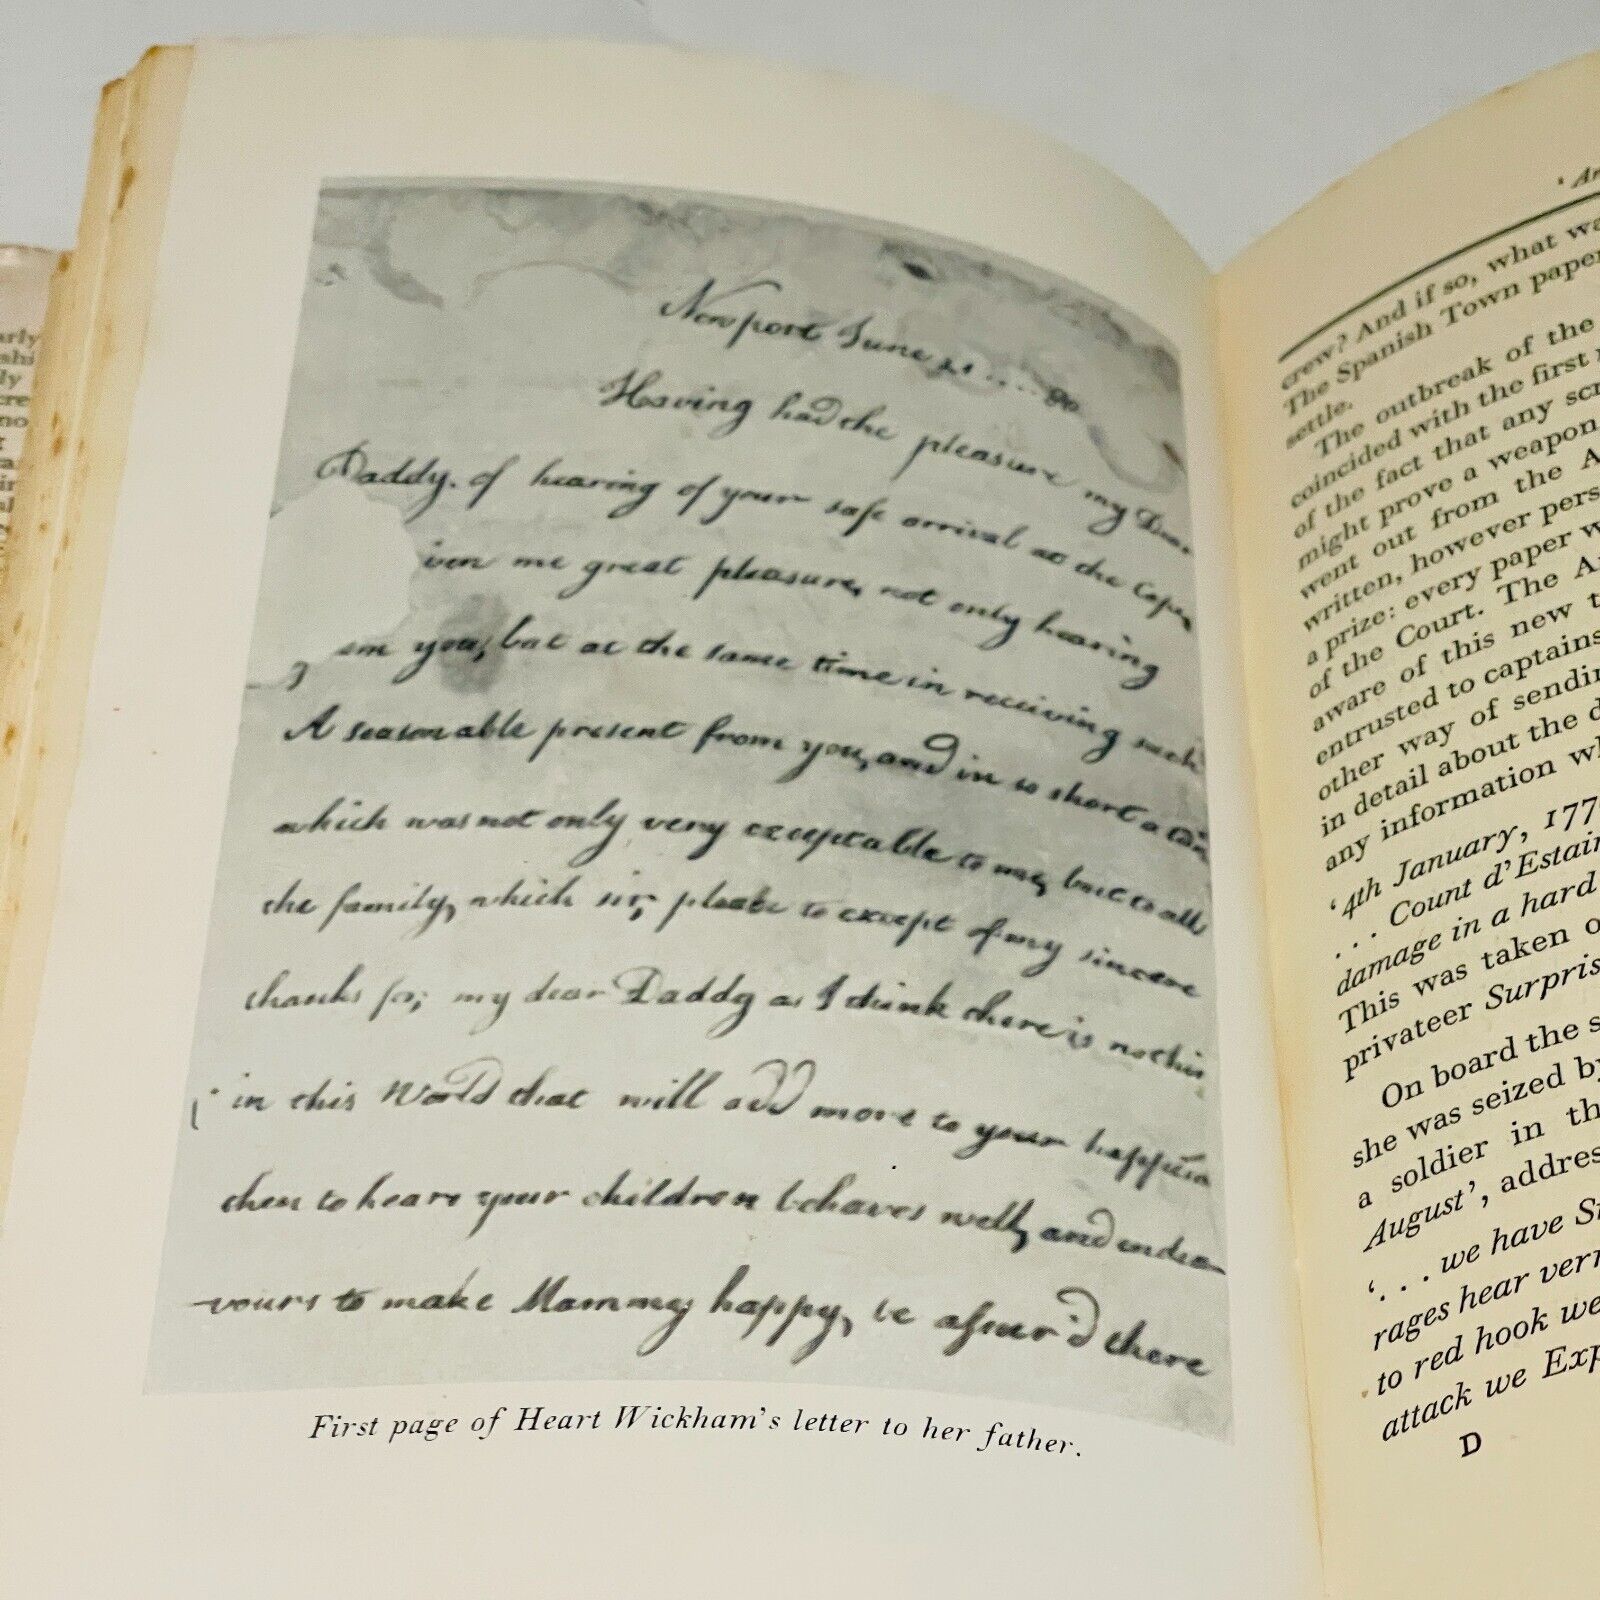 Newport June 21....80
Having had the pleasure my Dear
Daddy. of hearing of your safe arrival at the Cape,
iven me great pleasure, not only hearing
om you, but at the same time in receiving such
A seasonable present from you, and in so short a
which was not only very exceptable to me, but to all
the family, which sir, please to except of my sincere
thanks for, my dear Daddy as I think there is nothin
in this World that will add more to your happin
then to hear your children behaves well, and endea-
vours to make Mammy happy, be assur'd there
First page of Heart Wickham's letter to her father.
crew? And if so, what wa
The Spanish Town paper
settle.
The outbreak of the
coincided with the first
of the fact that any scr
might prove a weapon
went out from the A
written, however pers
a prize: every paper w
of the Court. The A
aware of this new t
entrusted to captains
other way of sendin
in detail about the d
any information wh
'4th January, 177
... Count d'Estain
damage in a hard
This was taken o
privateer Surpris
On board the s
she was seized by
a soldier in th
August', addres
'... we have S
rages hear verr
to red hook we
attack we Exp
D
arly
shi
ly
cre
no
t
ca
ir
al